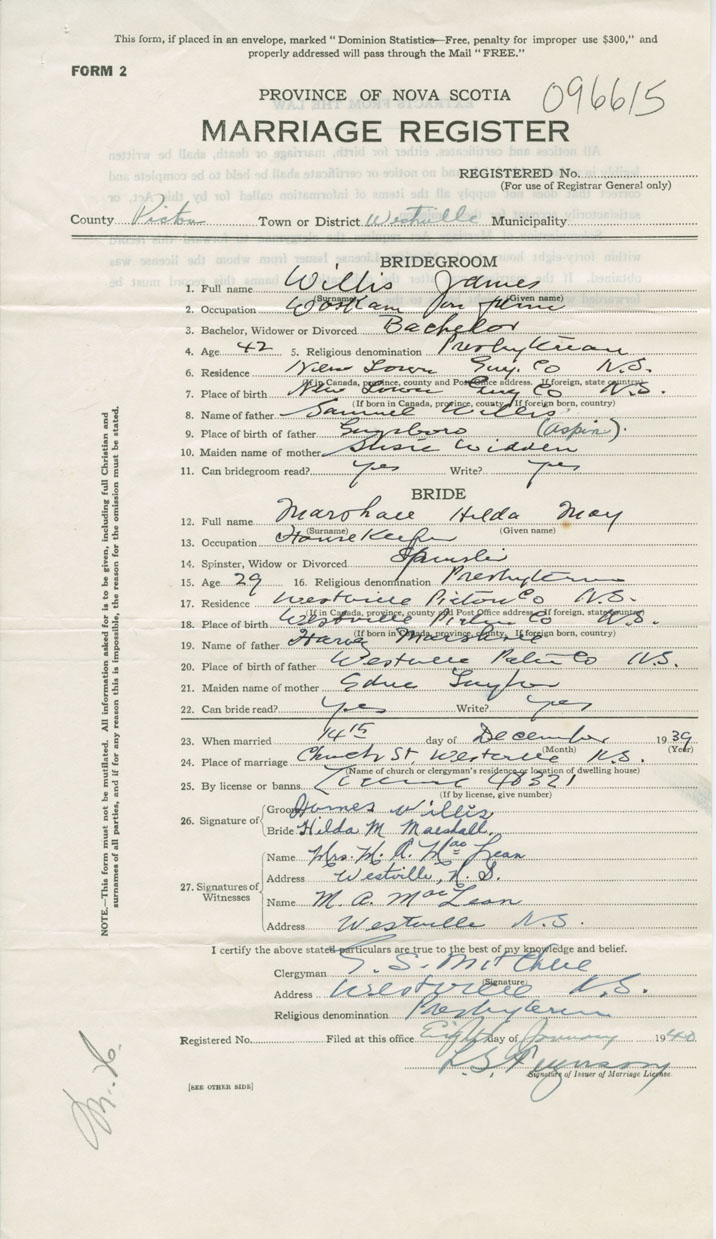 This form, if placed in an envelope, marked "Dominion Statistics—Free, penalty for improper use $300," and
properly addressed will pass through the Mail "FREE."
FORM 2
PROVINCE OF NOVA SCOTIA
096615
MARRIAGE REGISTER
REGISTERED No.
(For use of Registrar General only)
County Pictou Town or District Westville Municipality
BRIDEGROOM
1. Full name Willis James
(Surname) (Given name)
2. Occupation
3. Bachelor, Widower or Divorced Bachelor
4. Age 42 5. Religious denomination Presbyterian
6. Residence New Town Guy. Co N.S.
(If in Canada, province, county and Post Office address. If foreign, state country)
7. Place of birth New Town Guy Co N.S.
(If born in Canada, province, county. If foreign born, country)
8. Name of father Samuel Willis
9. Place of birth of father Guysboro (Aspin).
10. Maiden name of mother Susie
11. Can bridegroom read? yes Write? yes
BRIDE
12. Full name Marshall Hilda May
(Surname) (Given name)
13. Occupation House Keeper
14. Spinster, Widow or Divorced Spinster
15. Age 29 16. Religious denomination Presbyterian
17. Residence Westville Pictou Co N.S.
(If in Canada, province, county and Post Office address. If foreign, state country)
18. Place of birth Westville Pictou Co N.S.
(If born in Canada, province, county. If foreign born, country)
19. Name of father Harvey Marshall
20. Place of birth of father Westville Pictou Co N.S.
21. Maiden name of mother
22. Can bride read? yes Write? yes
23. When married 14th day of December 1939
(Month) (Year)
24. Place of marriage Church St, Westville N.S.
(Name of church or clergyman's residence or location of dwelling house)
25. By license or banns License 48321
(If by license, give number)
26. Signature of Groom James Willis
Bride Hilda M Marshall
27. Signatures of Witnesses
Name Mrs. M. A. MacLean
Address Westville, N.S.
Name M. A. MacLean
Address Westville N.S.
I certify the above stated particulars are true to the best of my knowledge and belief.
Clergyman
(Signature)
Address Westville N.S.
Religious denomination Presbyterian
Registered No. Filed at this office Eight day of January 1940
Signature of Issuer of Marriage License
[SEE OTHER SIDE]
NOTE.—This form must not be mutilated. All information asked for is to be given, including full Christian and
surnames of all parties, and if for any reason this is impossible, the reason for the omission must be stated.